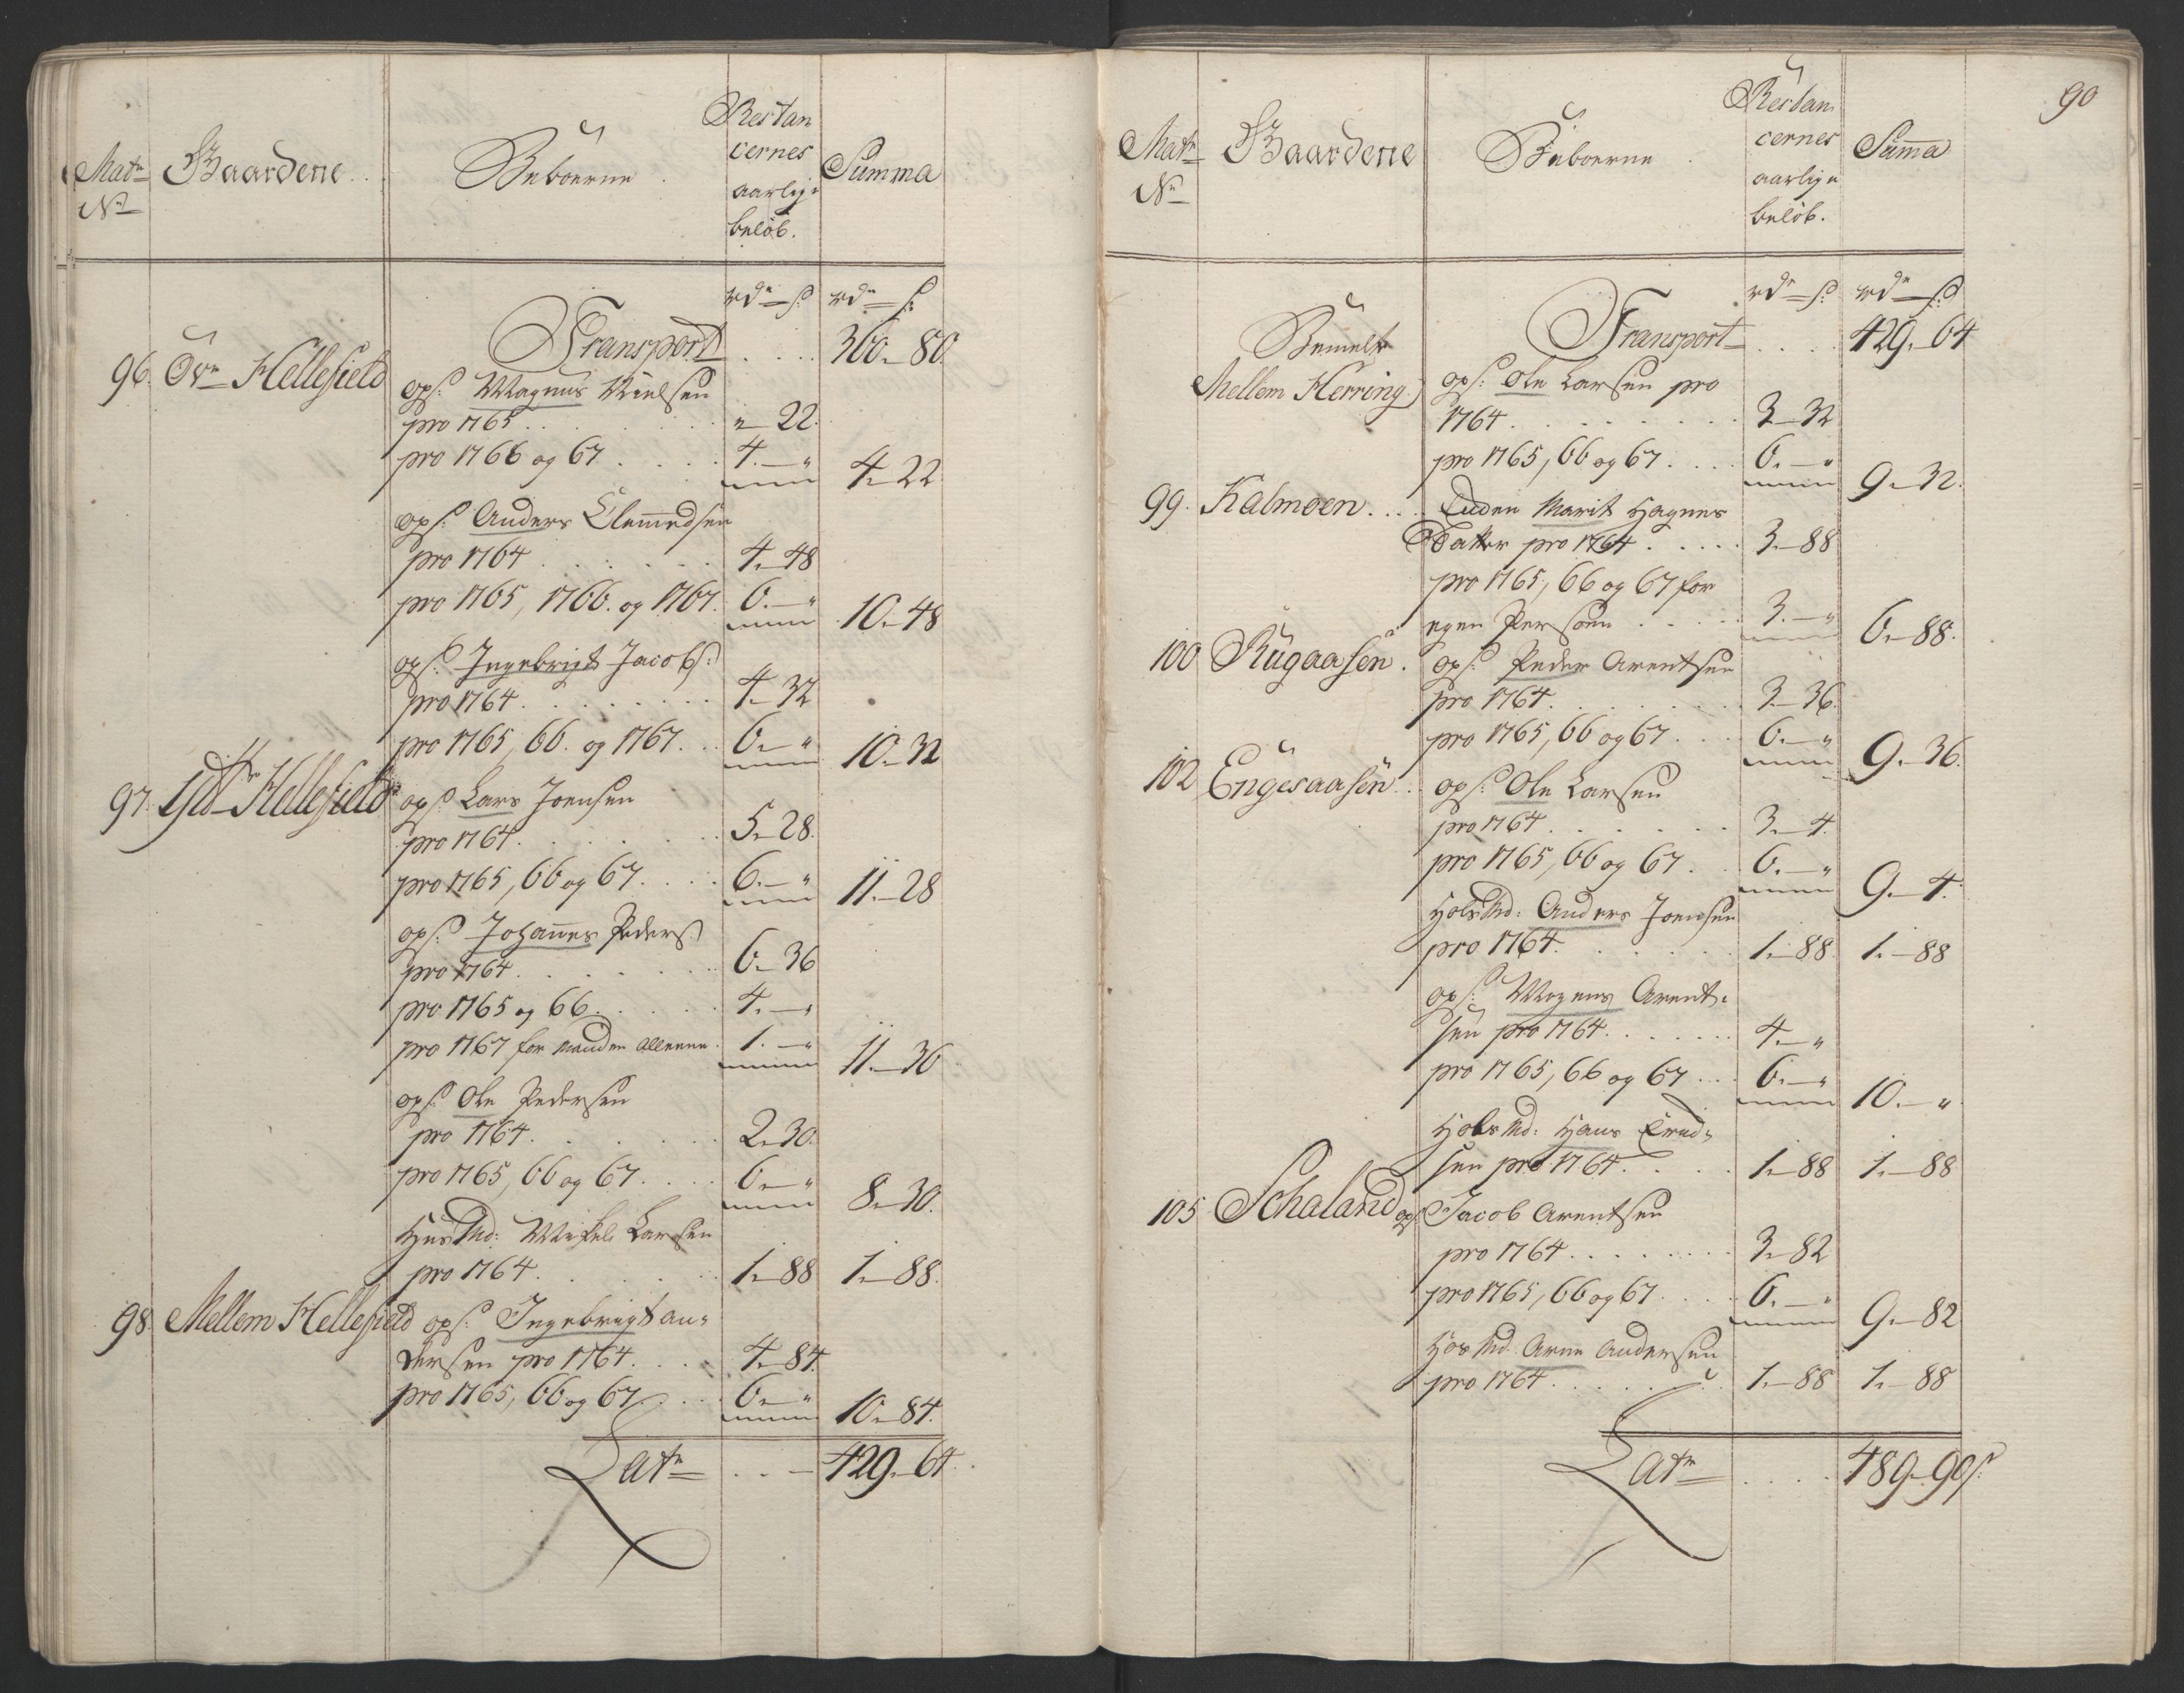 Matr
No
Gaardene
Beboerne
Restan
cernes
aarlige
beløb.
Summa
rdr ß rdr ß
Transport . . . . 360. 80.
96. Øvre Hellefield
ops: Magnus Nielsen
pro 1765 . . . „ 22.
pro 1766 og 67 . . . . 4. — „ 4. 22
ops: Anders Clemedsen
pro 1764 . . . . 4. 48
pro 1765, 1766. og 1767. 6. — „ 10. 48
ops: Ingebrigt Jacobs:
pro 1764 . . . . 4. 32
pro 1765, 66. og 1767. . . 6. — „ 10. 32
97. Hellefield ops: Lars Joensen
pro 1764 . . . . 5. 28.
pro 1765, 66 og 67 . . . . 6. — „ 11. 28
ops: Johannes Peders:
pro 1764 . . . . 6. 36
pro 1765 og 66 . . . . 4. — „
pro 1767 for Manden alleene. 1. — „ 11. 36
ops: Ole Pedersen
pro 1764 . . . . 2. 30.
pro 1765, 66 og 67 . . . . 6. — „ 8. 30.
Huusmd: Mikel Larsen
pro 1764 . . . . 1. 88 1. 88.
98. Mellem Hellefield ops: Ingebrigt An-
dersen pro 1764 . . . . 4. 84.
pro 1765, 66 og 67 . . . . 6. — „ 10. 84.
Latr . . . 429. 64.
90
Matr
No
Gaardene
Beboerne
Restan
cernes
aarlige
beløb.
Summa
rdr ß rdr ß
Transport . . . . 429. 64
Bemelte
Mellem Herring
ops: Ole Larsen pro
1764 . . . . 3. 32
pro 1765, 66 og 67 . . . . 6. — „ 9. 32.
99. Kalmoen . . . . Enken Marit Hagens
Datter pro 1764 . . . . 3. 88
pro 1765, 66 og 67 for
egen Persoen . . . . 3. — „ 6. 88.
100 Rugaasen . ops: Peder Arentsen
pro 1764 . . . . 3. 36.
pro 1765, 66 og 67 . . . 6. — „ 9. 36.
102 Engesaasen . . ops: Ole Larsen
pro 1764 . . . . 3. 4.
pro 1765, 66 og 67 . . 6. — „ 9. 4.
Huusmd: Anders Joensen
pro 1764 . . . . 1. 88. 1. 88
ops: Mogens Arent-
sen pro 1764 . . . . 4. — „
pro 1765, 66 og 67 . . . 6. — „ 10. — „
Huusmd: Hans
sen pro 1764 . . . . 1. 88 1. 88
105 Schaland ops: Jacob Arentsen
pro 1764 . . . . 3. 82
pro 1765, 66 og 67 . . . . 6. — „ 9. 82
Huusmd: Arne Andersen
pro 1764 . . . . 1. 88 1. 88
Latr . . . . 489. 90 ß: